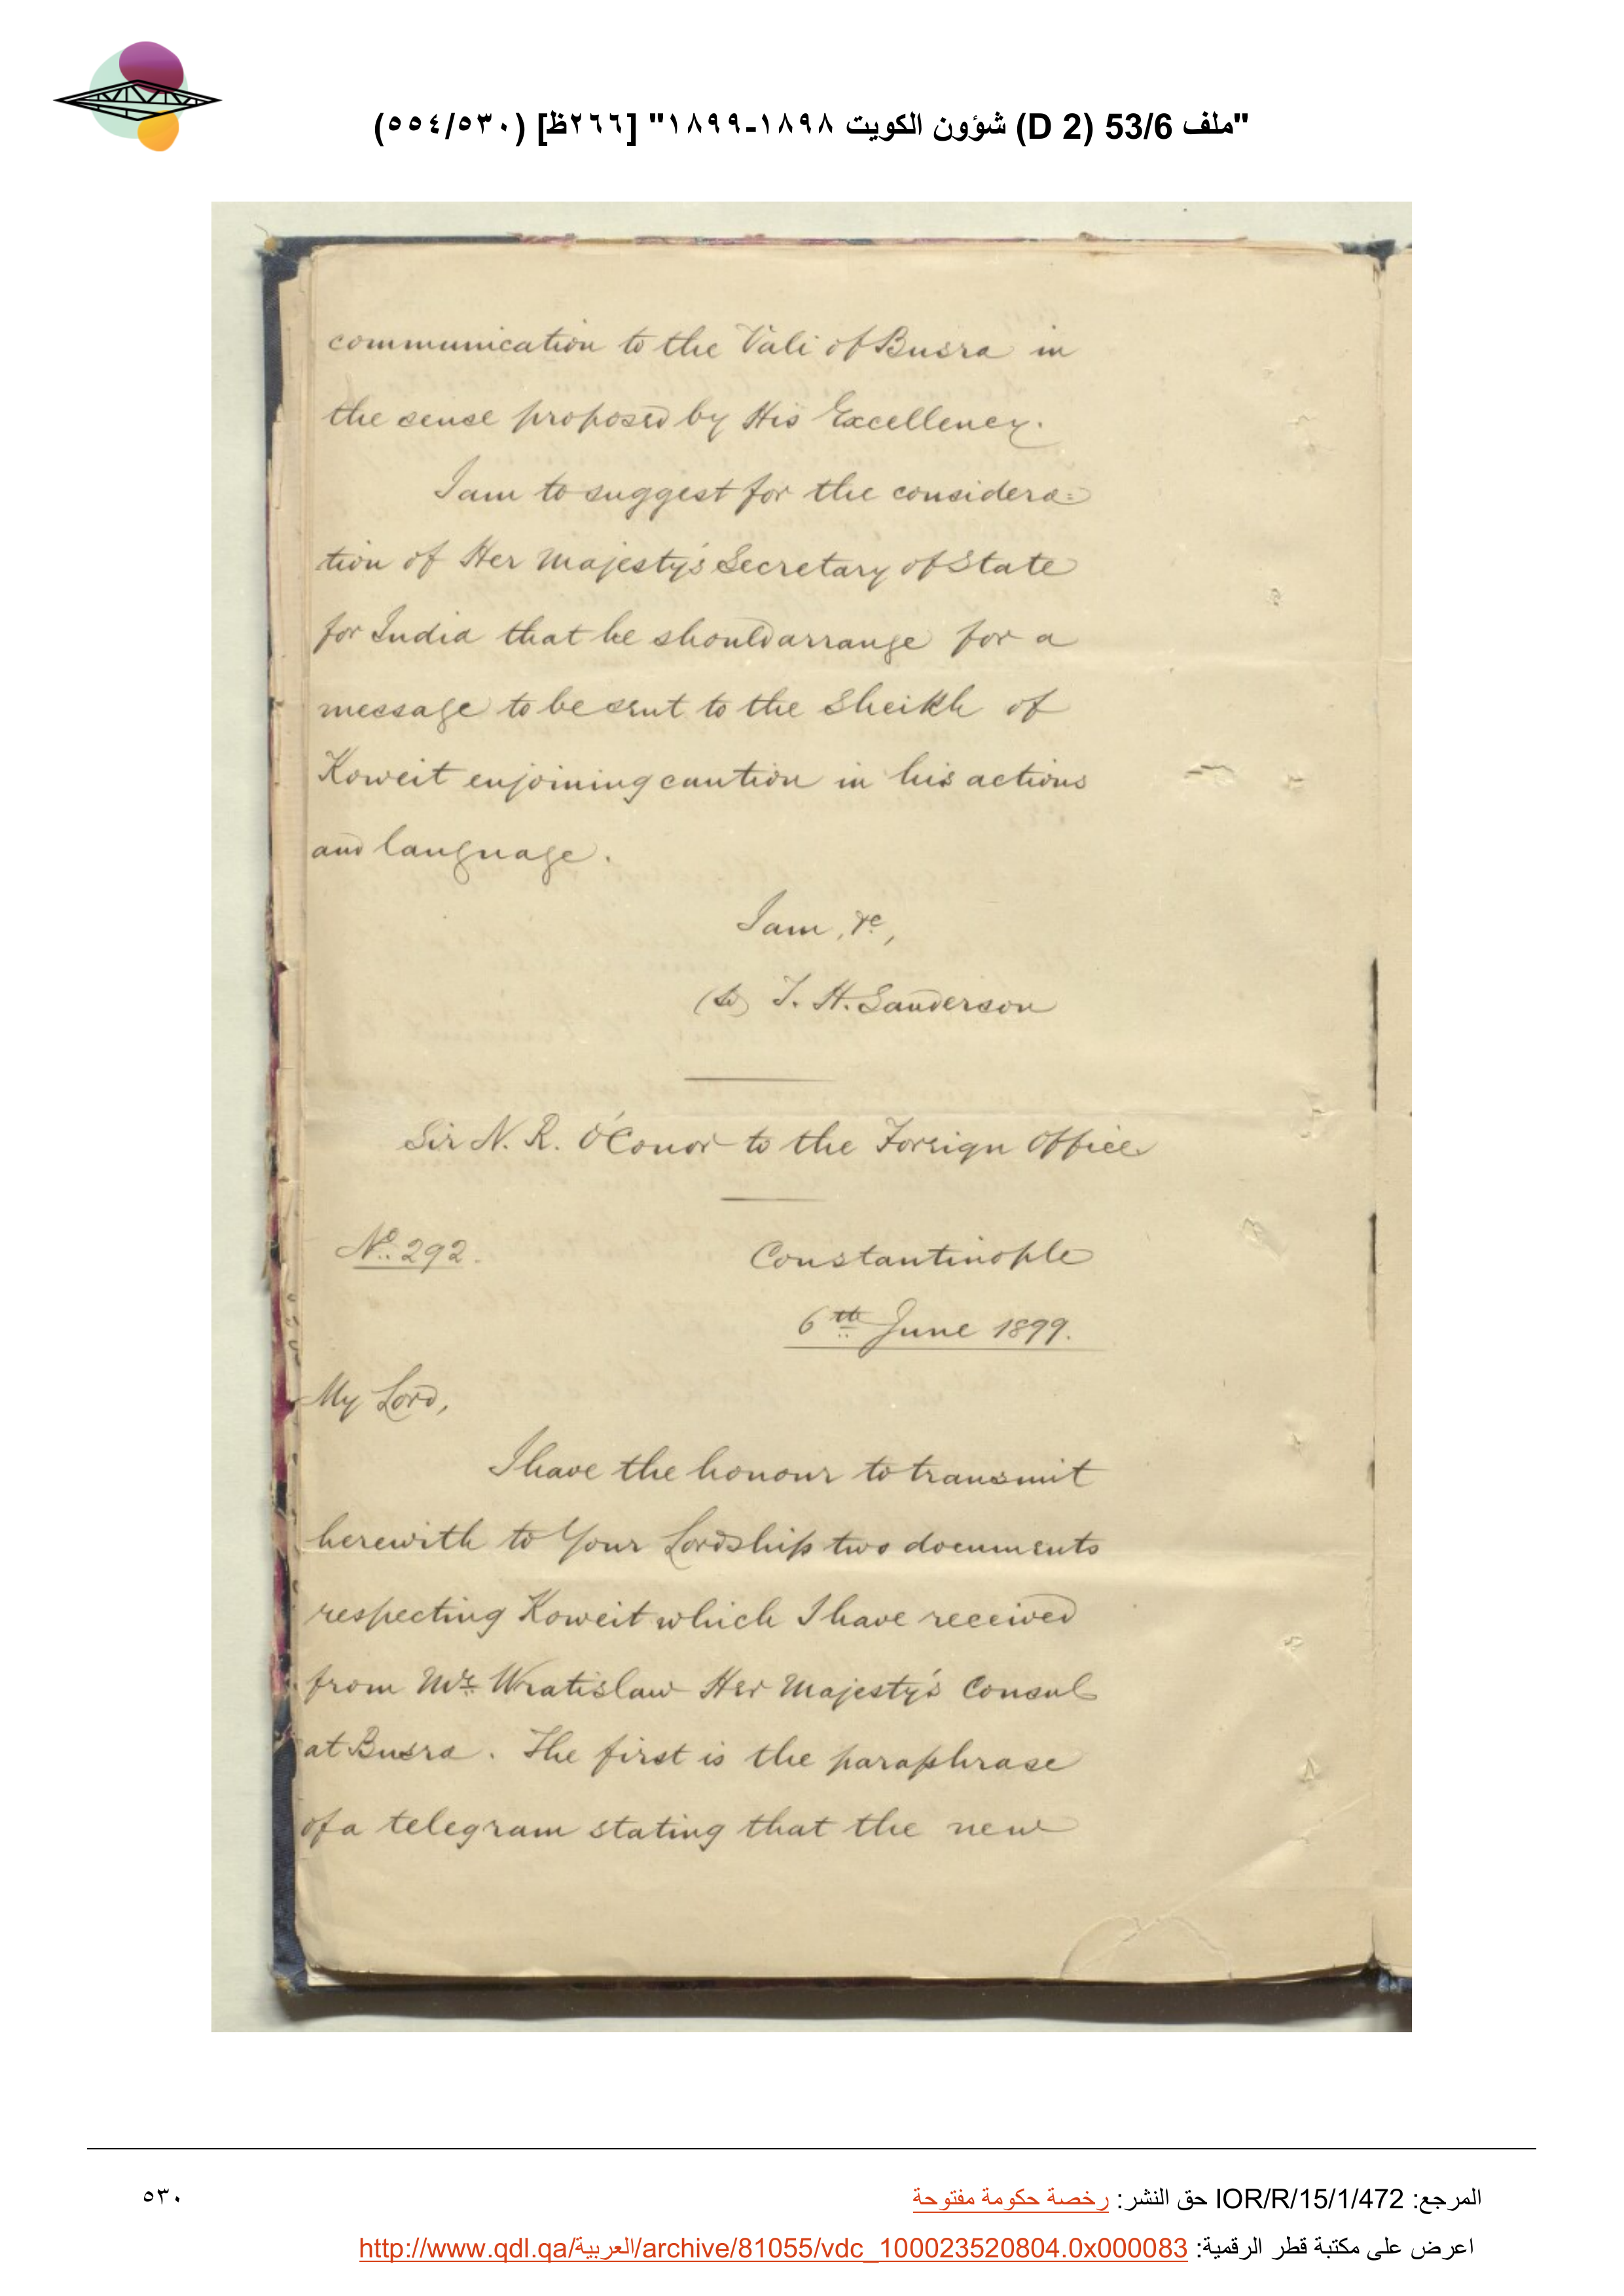 "ملف 53/6 (D 2) شؤون الكويت ١٨٩٨-١٨٩٩" [٢٦٦ظ] (٥٣٠/٥٥٤)
communication to the Vali of Busra in
the sense proposed by His Excellency.
I am to suggest for the considera=
tion of Her Majesty's Secretary of State
for India that he should arrange for a
message to be sent to the Sheikh of
Koweit enjoining caution in his actions
and language.
I am, &c,
(Sd) T. H. Sanderson
Sir N. R. O'Conor to the Foreign Office
No. 292.
Constantinople
6th June 1899.
My Lord,
I have the honour to transmit
herewith to Your Lordship two documents
respecting Koweit which I have received
from Mr. Wratislaw Her Majesty's Consul
at Busra. The first is the paraphrase
of a telegram stating that the new
المرجع: IOR/R/15/1/472 حق النشر: رخصة حكومة مفتوحة
٥٣٠
اعرض على مكتبة قطر الرقمية: http://www.qdl.qa/العربية/archive/81055/vdc_100023520804.0x000083